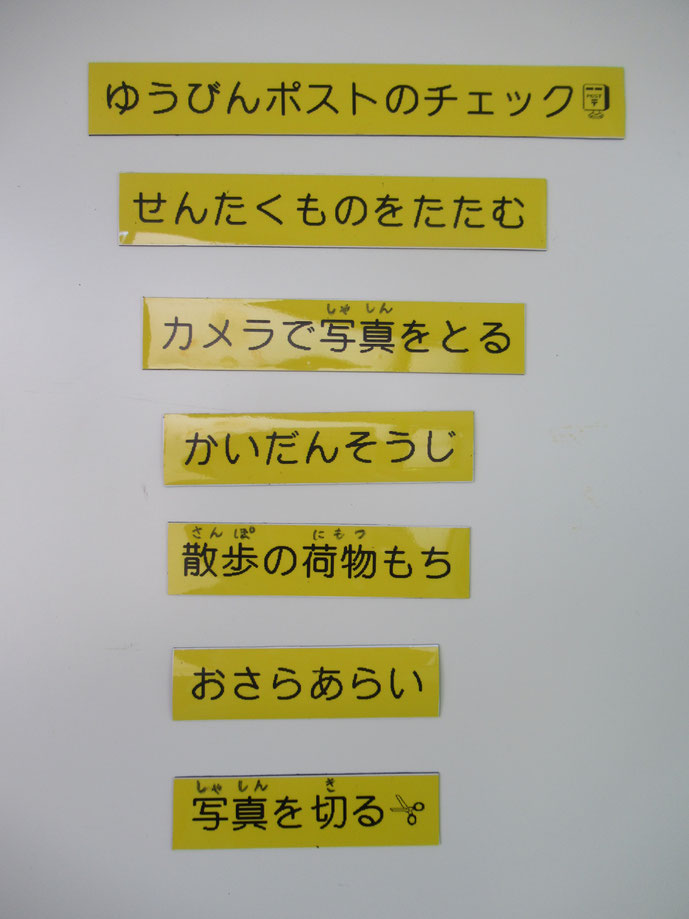 ゆうびんポストのチェック
せんたくものをたたむ
しゃしん
カメラで写真をとる
かいだんそうじ
さんぽ にもつ
散歩の荷物もち
おさらあらい
しゃしん き
写真を切る